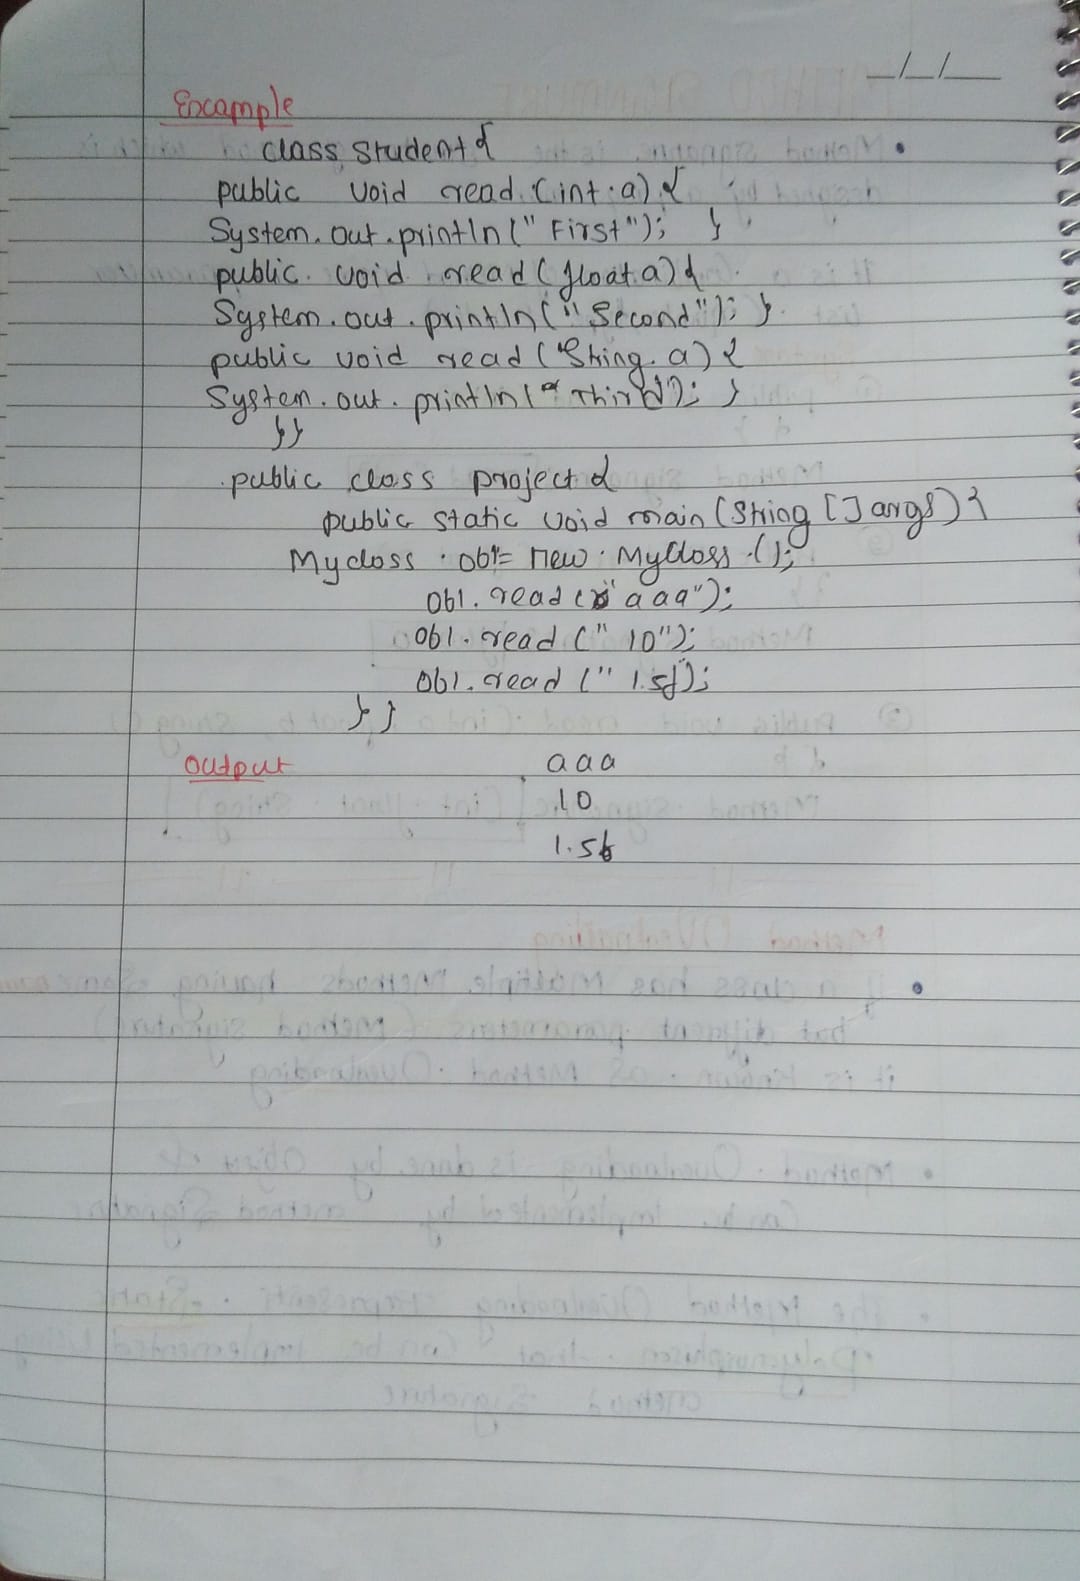 _/_/__
Example
class student {
public void read (int a) {
System.out.println(" First"); }
public void read (float a) {
System.out.println(" Second"); }
public void read (String a) {
System.out.println(" Third"); }
}}
public class project {
public static void main (String [] args) {
Myclass ob1= new MyClass ();
ob1.read (" aaa");
ob1.read (" 10");
ob1.read (" 1.5f);
} }
Output
aaa
10